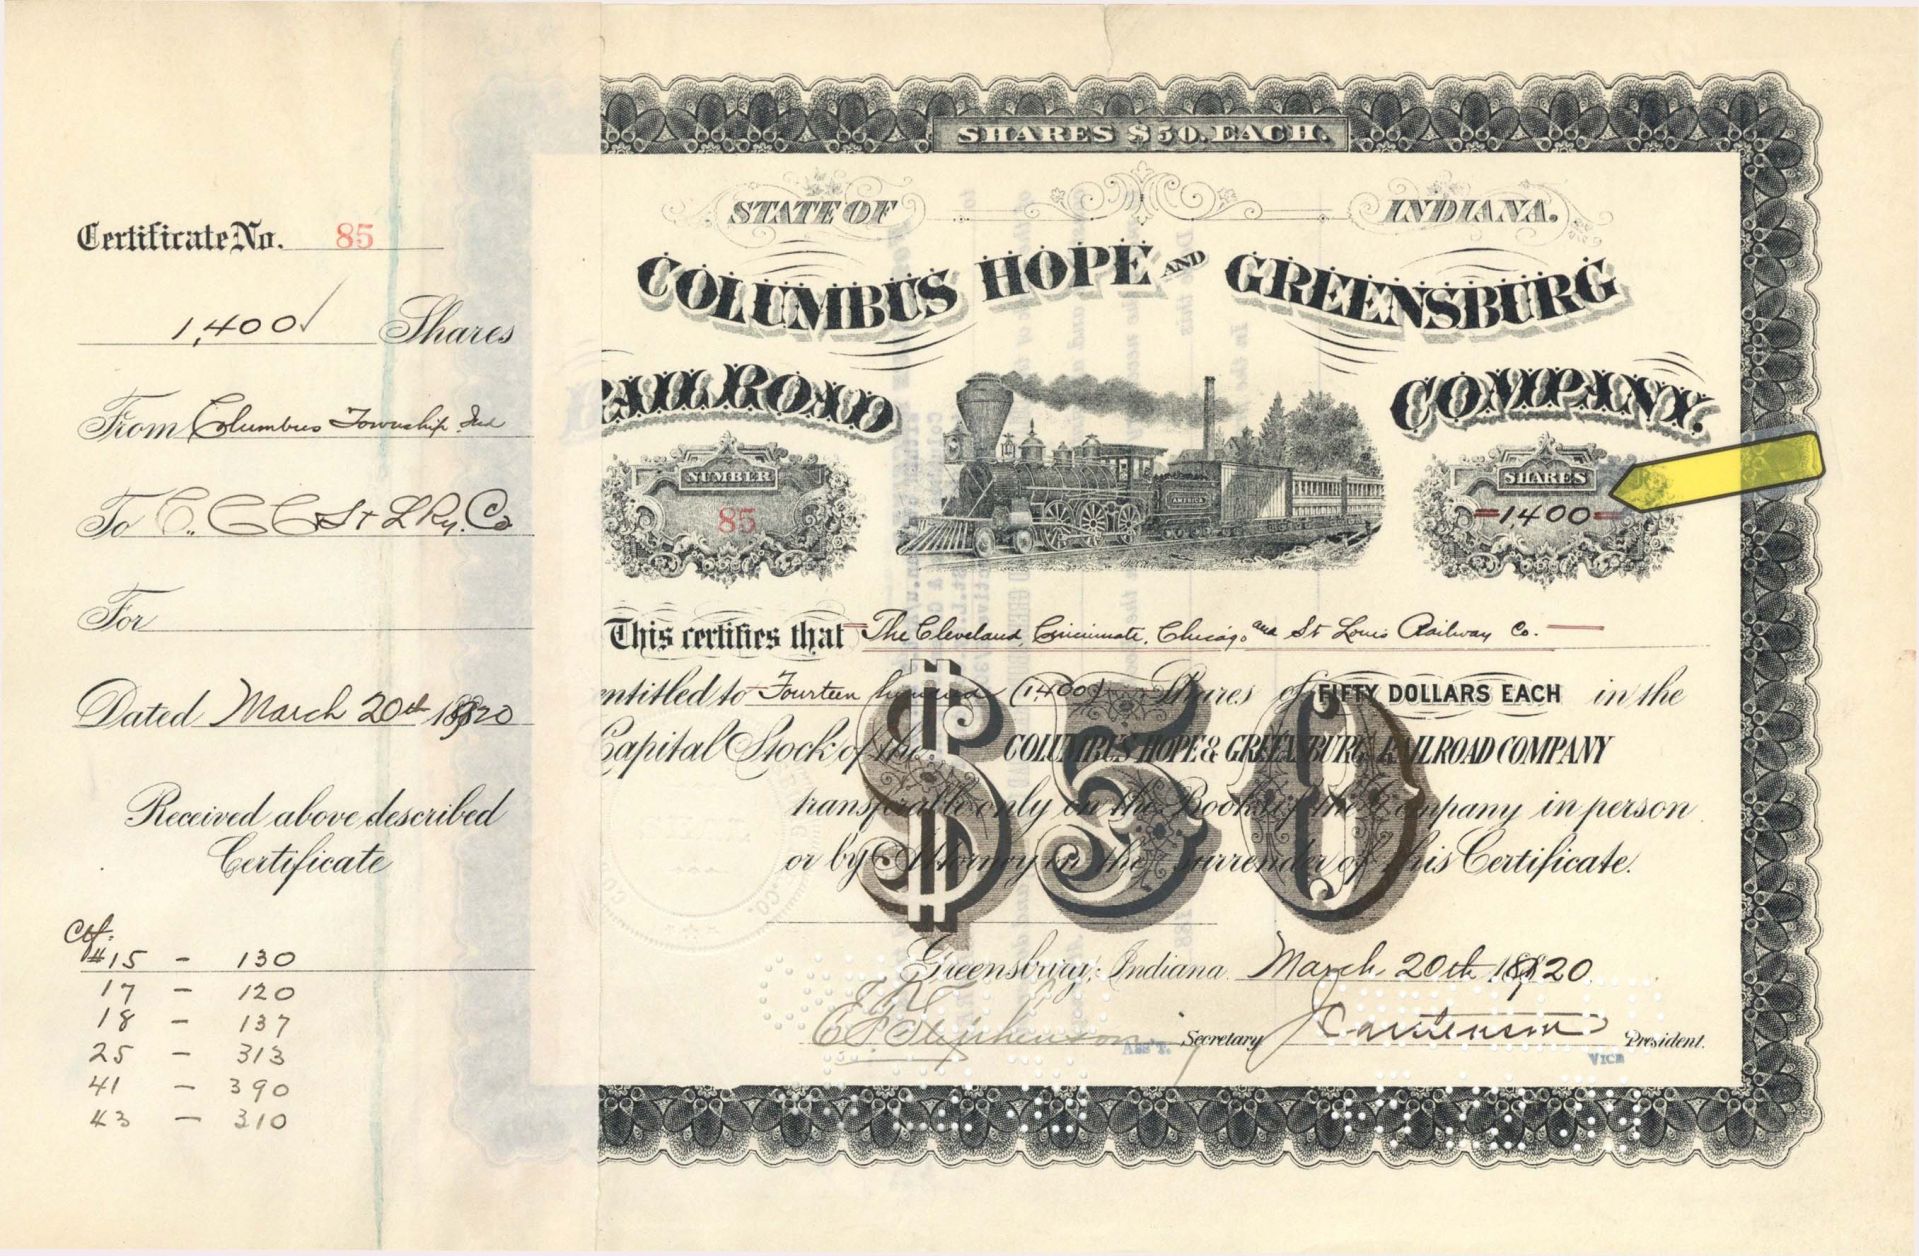 Certificate No. 85
1,400 Shares
From Columbus Township Ind
To C. C. C & St L Ry. Co
For
Dated March 20th 1920
Received above described
Certificate
Ctf.
#15 - 130
17 - 120
18 - 137
25 - 313
41 - 390
43 - 310
SHARES $50. EACH.
STATE OF INDIANA.
COLUMBUS HOPE AND GREENSBURG
RAILROAD COMPANY.
NUMBER
85
AMERICA
SHARES
=1400=
This certifies that The Cleveland, Cincinnati, Chicago and St Louis Railway Co.
entitled to Fourteen hundred (1400) Shares of FIFTY DOLLARS EACH in the
Capital Stock of the COLUMBUS HOPE & GREENSBURG RAILROAD COMPANY
transferable only on the Books of the Company in person
or by Attorney on the surrender of this Certificate.
$50
Greensburg, Indiana March 20th 1920
Ass't. Secretary
VICE President.